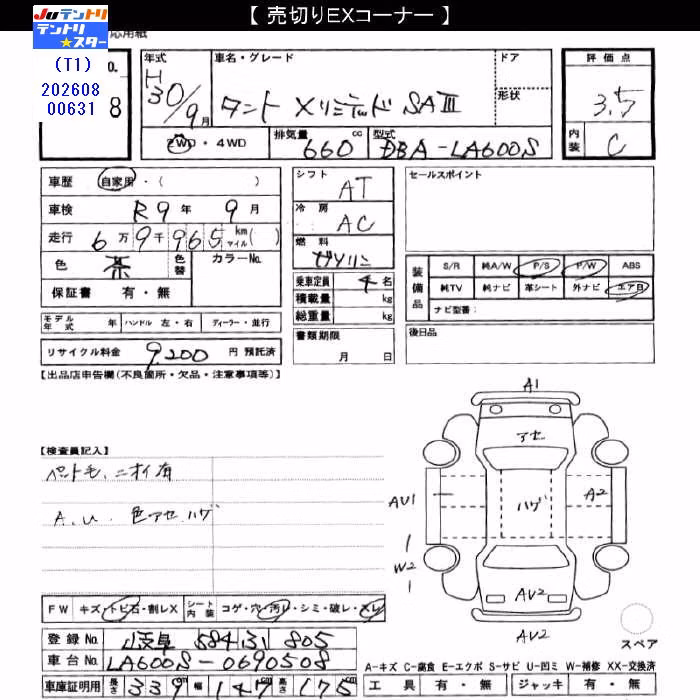 【 売切りEXコーナー 】
JUテントリ
テントリ★スター
応用紙
(T1)
202608
00631
o.
8
年式 車名・グレード ドア 形状 評価点
H
30/9月 タント Xリミテッド SAⅢ 3.5
2WD・4WD 排気量 660 cc 型式 DBA-LA600S 内装 C
車歴 自家用・( )
車検 R9年 9月
走行 6万9千965 km マイル( )
色 茶 色替 カラーNo.
保証書 有・無
シフト AT
冷房 AC
燃料 ガソリン
乗車定員 4名
積載量 kg
総重量 kg
書類期限
月 日
セールスポイント
装備品 S/R 純A/W P/S P/W ABS
純TV 純ナビ 革シート 外ナビ エアB
ナビ型番:
後日品
モデル年式 年 ハンドル 左・右 ディーラー・並行
リサイクル料金 9,200 円 預託済
【出品店申告欄(不良箇所・欠品・注意事項等)】
【検査員記入】
ペット毛、ニオイ有
A.U. 色アセ ハゲ
A1
アセ
AU1
ハゲ
A2
W2
AU2
AU2
スペア
FW キズ・トビ石・割レX シート内装 コゲ・穴・汚レ・シミ・破レ・スレ
登録No. 岐阜 584 い 805
車台No. LA600S-0690508
車庫証明用 長さ 339 幅 147 高さ 175 cm
A-キズ C-腐食 E-エクボ S-サビ U-凹ミ W-補修 XX-交換済
工具 有・無 ジャッキ 有・無